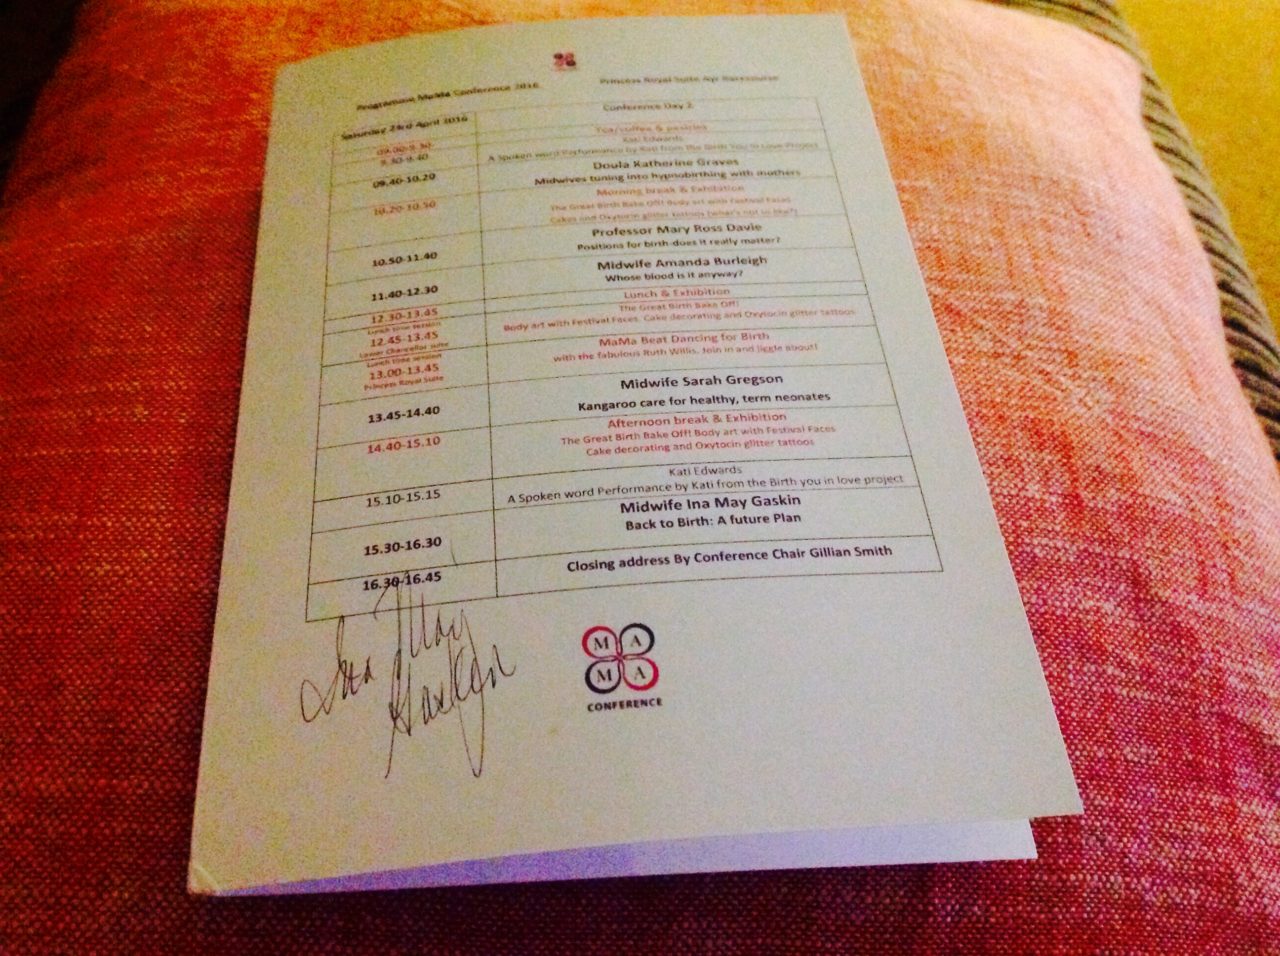 Programme MaMa Conference 2016
Princess Royal Suite Ayr Racecourse
Saturday 23rd April 2016
Conference Day 2
09.00-9.30
Tea/coffee & pastries
9.30-9.40
Kati Edwards
A Spoken word Performance by Kati from the Birth You in Love Project
09.40-10.20
Doula Katherine Graves
Midwives tuning into hypnobirthing with mothers
10.20-10.50
Morning break & Exhibition
The Great Birth Bake Off! Body art with Festival Faces
Cakes and Oxytocin glitter tattoos (what's not to like?)
10.50-11.40
Professor Mary Ross Davie
Positions for birth-does it really matter?
11.40-12.30
Midwife Amanda Burleigh
Whose blood is it anyway?
12.30-13.45
Lunch & Exhibition
Lunch time session
12.45-13.45
Lower Chancellor suite
The Great Birth Bake Off!
Body art with Festival Faces. Cake decorating and Oxytocin glitter tattoos
Lunch time session
13.00-13.45
Princess Royal Suite
MaMa Beat Dancing for Birth
with the fabulous Ruth Willis. Join in and jiggle about!
13.45-14.40
Midwife Sarah Gregson
Kangaroo care for healthy, term neonates
14.40-15.10
Afternoon break & Exhibition
The Great Birth Bake Off! Body art with Festival Faces
Cake decorating and Oxytocin glitter tattoos
15.10-15.15
Kati Edwards
A Spoken word Performance by Kati from the Birth you in love project
15.30-16.30
Midwife Ina May Gaskin
Back to Birth: A future Plan
16.30-16.45
Closing address By Conference Chair Gillian Smith
Ina May
Gaskin
M A
M A
CONFERENCE